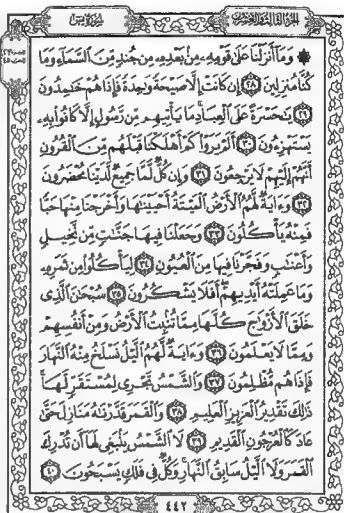 الجزء الثالث والعشرون
سورة يس
۞ وَمَا أَنزَلْنَا عَلَىٰ قَوْمِهِۦ مِنۢ بَعْدِهِۦ مِن جُندٍ مِّنَ ٱلسَّمَآءِ وَمَا
كُنَّا مُنزِلِينَ ٢٨ إِن كَانَتْ إِلَّا صَيْحَةً وَٰحِدَةً فَإِذَا هُمْ خَٰمِدُونَ
٢٩ يَٰحَسْرَةً عَلَى ٱلْعِبَادِ مَا يَأْتِيهِم مِّن رَّسُولٍ إِلَّا كَانُوا۟ بِهِۦ
يَسْتَهْزِءُونَ ٣٠ أَلَمْ يَرَوْا۟ كَمْ أَهْلَكْنَا قَبْلَهُم مِّنَ ٱلْقُرُونِ
أَنَّهُمْ إِلَيْهِمْ لَا يَرْجِعُونَ ٣١ وَإِن كُلٌّ لَّمَّا جَمِيعٌ لَّدَيْنَا مُحْضَرُونَ
٣٢ وَءَايَةٌ لَّهُمُ ٱلْأَرْضُ ٱلْمَيْتَةُ أَحْيَيْنَٰهَا وَأَخْرَجْنَا مِنْهَا حَبًّا
فَمِنْهُ يَأْكُلُونَ ٣٣ وَجَعَلْنَا فِيهَا جَنَّٰتٍ مِّن نَّخِيلٍ
وَأَعْنَٰبٍ وَفَجَّرْنَا فِيهَا مِنَ ٱلْعُيُونِ ٣٤ لِيَأْكُلُوا۟ مِن ثَمَرِهِۦ
وَمَا عَمِلَتْهُ أَيْدِيهِمْ أَفَلَا يَشْكُرُونَ ٣٥ سُبْحَٰنَ ٱلَّذِى
خَلَقَ ٱلْأَزْوَٰجَ كُلَّهَا مِمَّا تُنۢبِتُ ٱلْأَرْضُ وَمِنْ أَنفُسِهِمْ
وَمِمَّا لَا يَعْلَمُونَ ٣٦ وَءَايَةٌ لَّهُمُ ٱلَّيْلُ نَسْلَخُ مِنْهُ ٱلنَّهَارَ
فَإِذَا هُم مُّظْلِمُونَ ٣٧ وَٱلشَّمْسُ تَجْرِى لِمُسْتَقَرٍّ لَّهَا
ذَٰلِكَ تَقْدِيرُ ٱلْعَزِيزِ ٱلْعَلِيمِ ٣٨ وَٱلْقَمَرَ قَدَّرْنَٰهُ مَنَازِلَ حَتَّىٰ
عَادَ كَٱلْعُرْجُونِ ٱلْقَدِيمِ ٣٩ لَا ٱلشَّمْسُ يَنۢبَغِى لَهَآ أَن تُدْرِكَ
ٱلْقَمَرَ وَلَا ٱلَّيْلُ سَابِقُ ٱلنَّهَارِ وَكُلٌّ فِى فَلَكٍ يَسْبَحُونَ ٤٠
٤٤٢